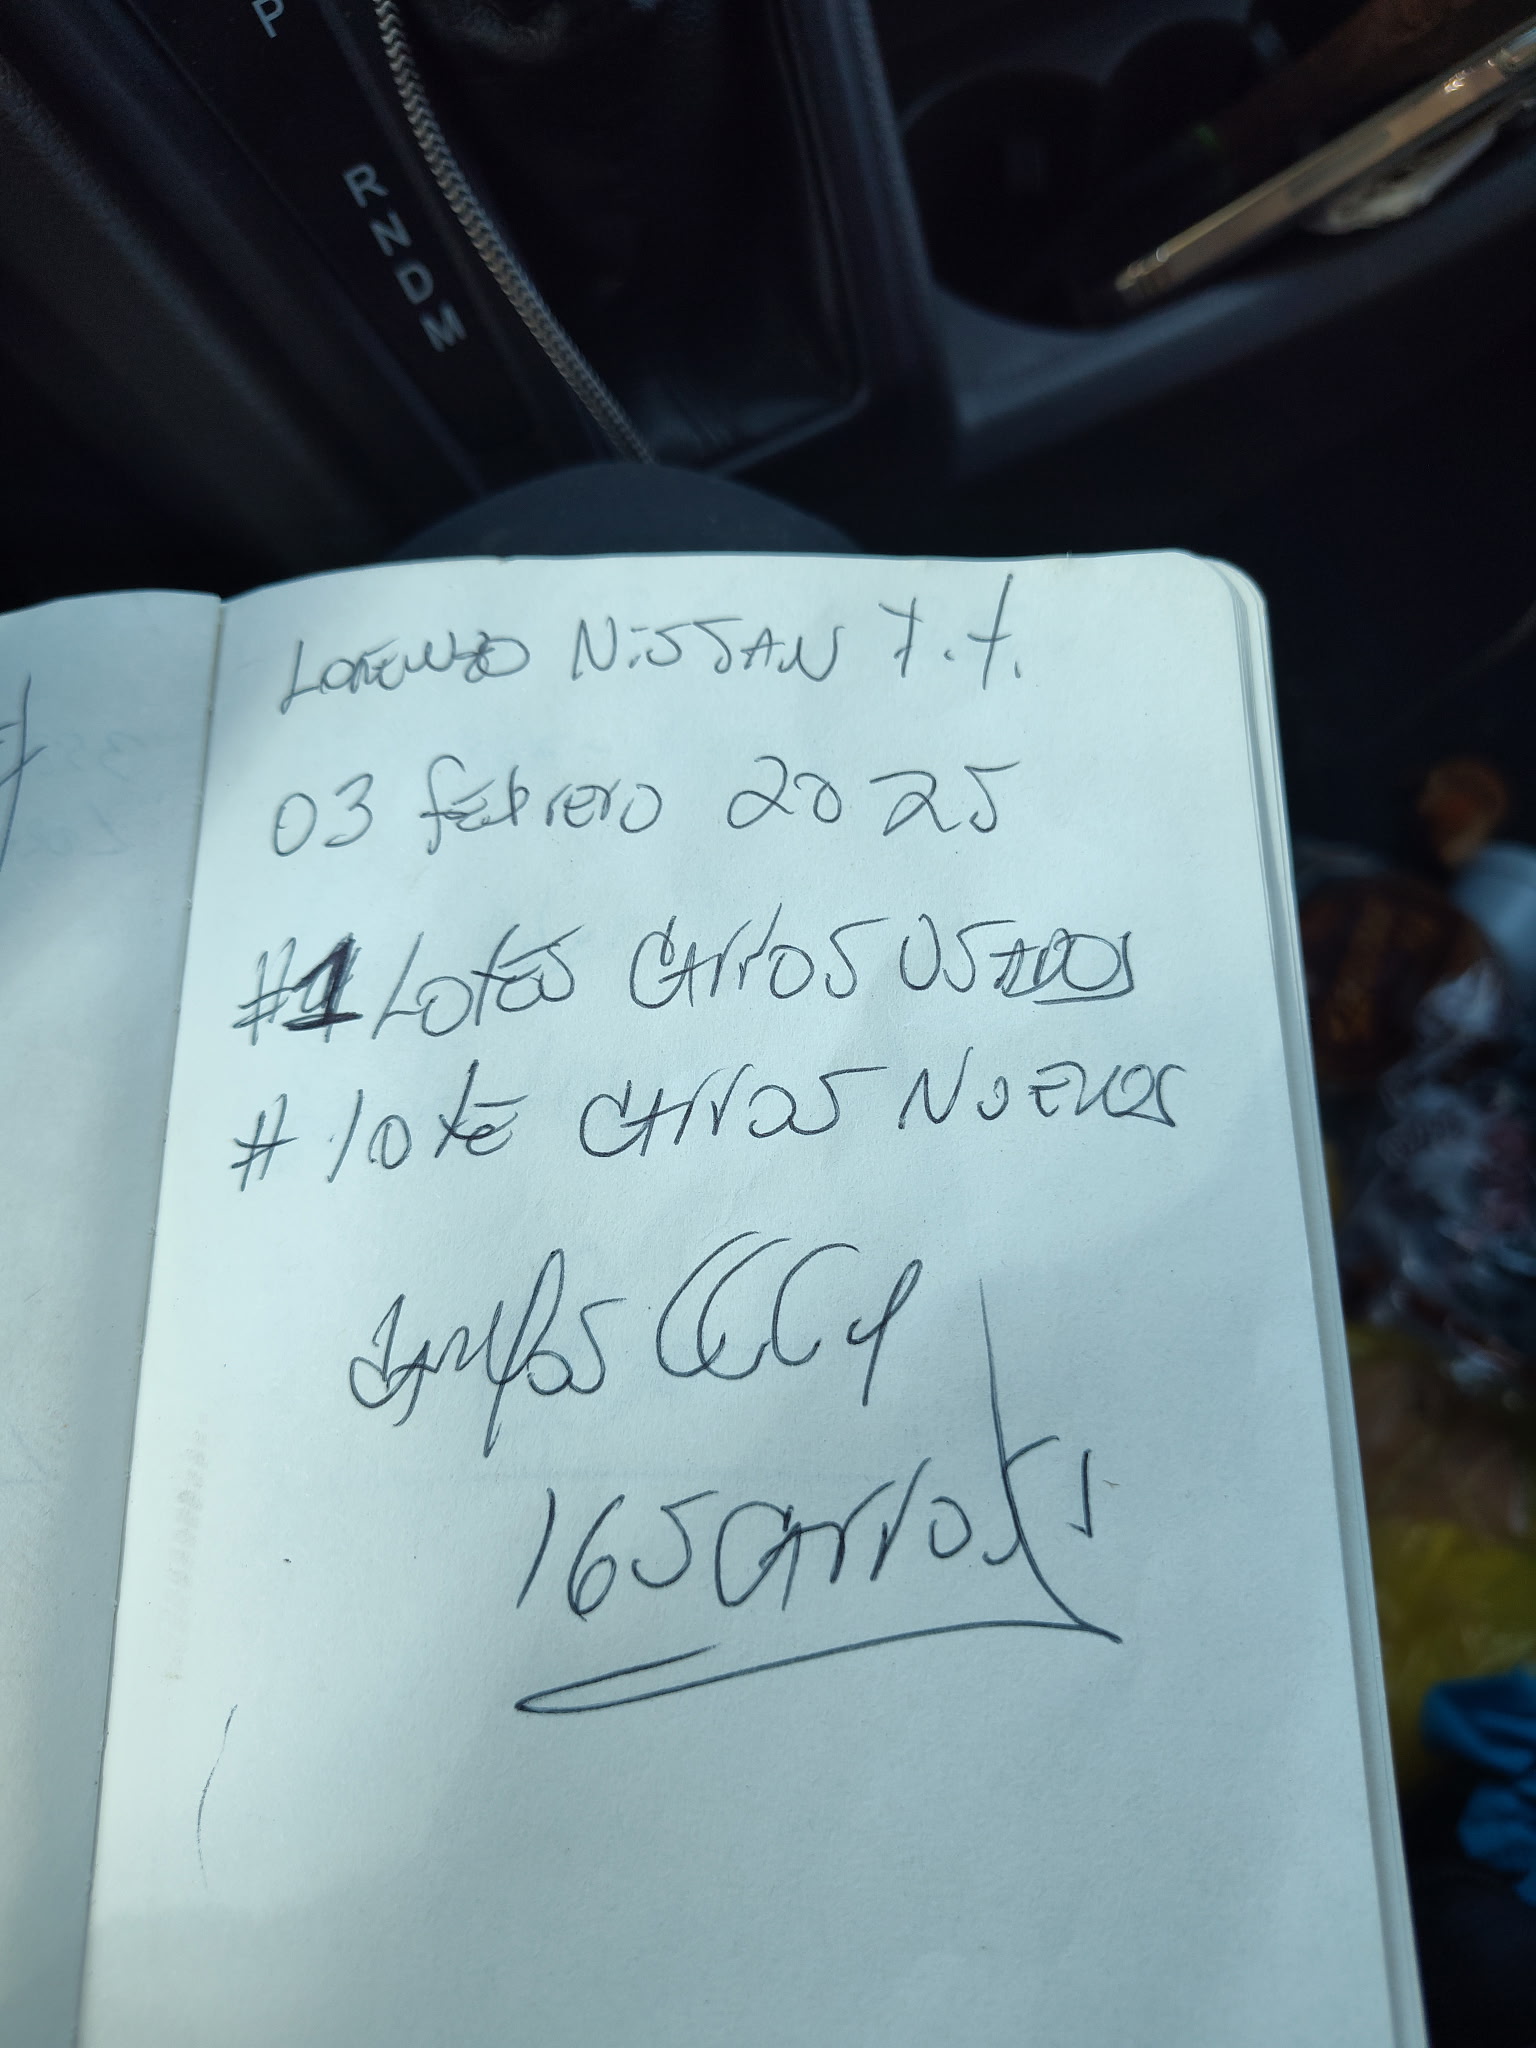 P
R
N
D
M
LORENZO NISSAN 7.7.
03 febrero 2025
#1 LOTES CARROS USADOS
# 1 LOTE CARROS NUEVOS
165 CARROS